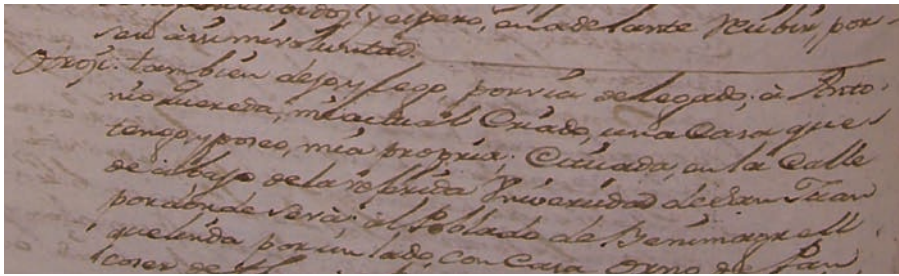 y espero, en adelante recibir, por
ser assi mi voluntad.
Otrosi: tambien dejo, y lego, por via de legado, à Anto-
nio Quereda, mi actual Criado, una Casa que
tengo, y poseo, mia propria, cituada, en la Calle
de abajo de la referida Universidad de San Juan
por dónde se và al Poblado de Benimagrell
que linda por un lado, con Casa